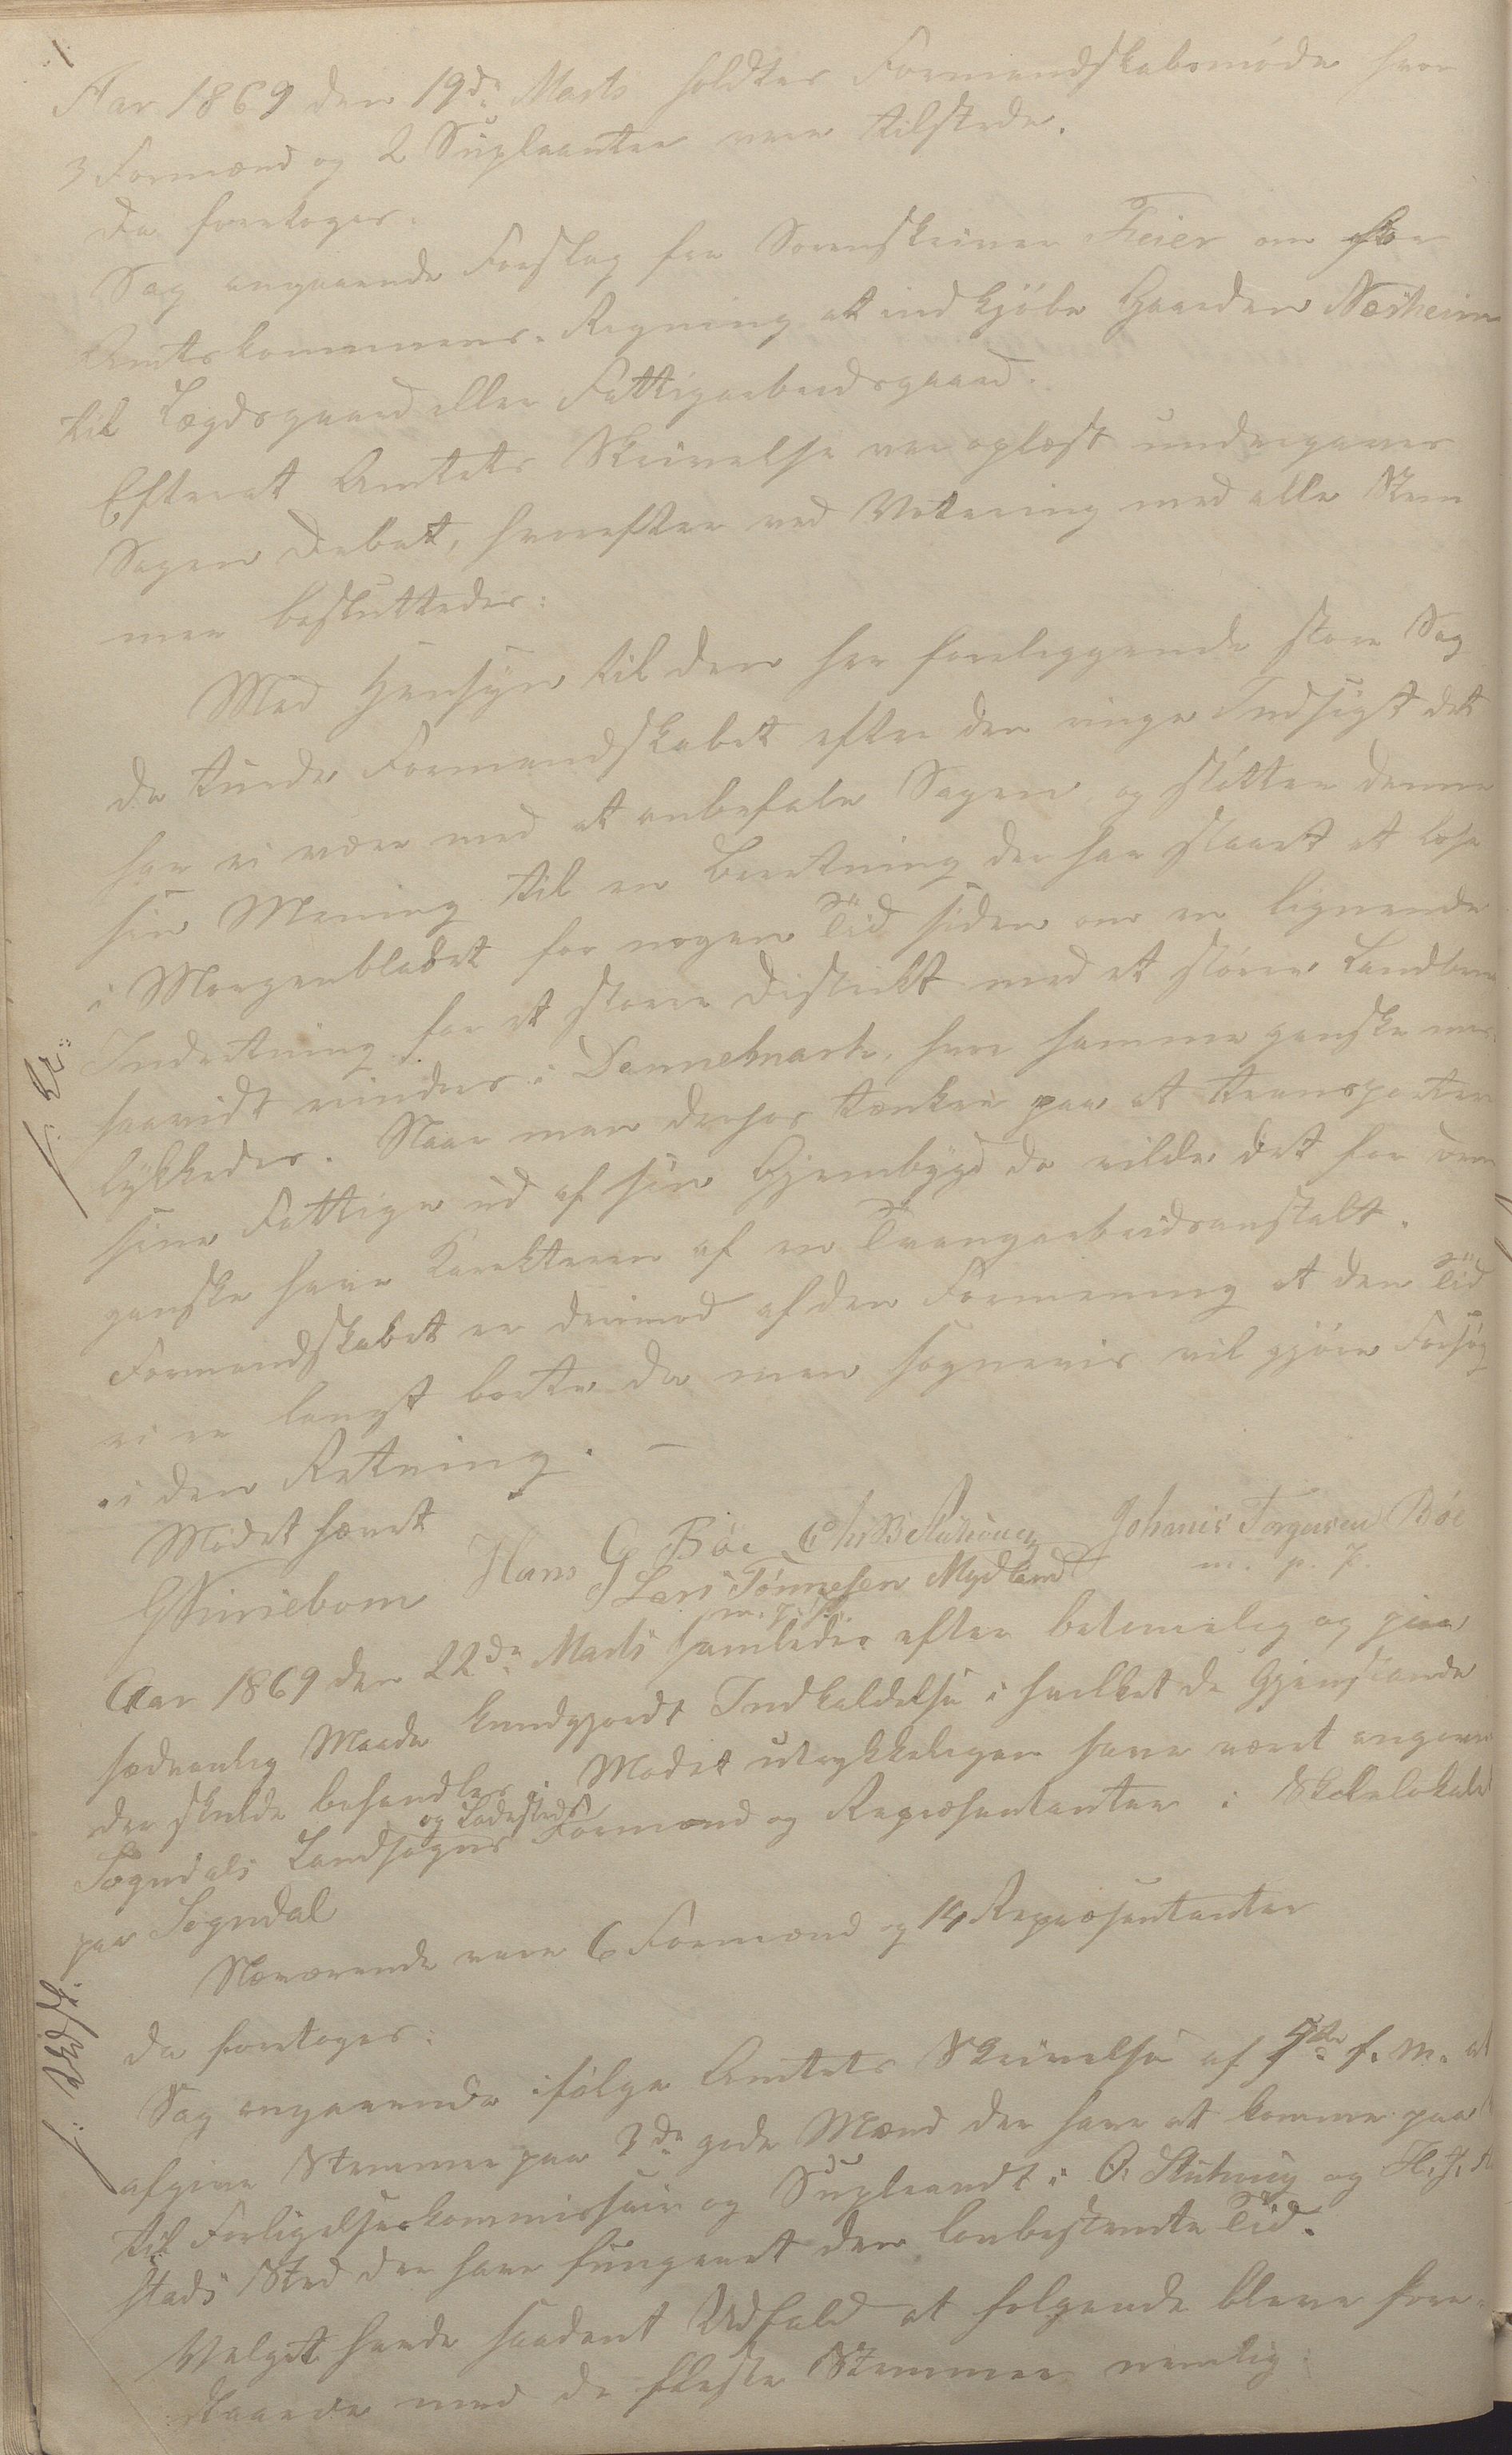 Aar 1869 den 19de Marts holdtes Formandskabsmøde hvor
3 Formænd og 2 Suplianter vare tilstede.
da foretoges:
Sag angaaende Forslag fra Sorenskriver Feier om for
Amtskommunens Regning at indkjöbe Gaarden Næsheim
til Lægdsgaard eller Fattigarbeidsgaard.
Efterat Amtets Skrivelse var oplæst undergaves
Sagen Debat, hvorefter ved Votering med alle Stem
mer besluttedes:
Med Hensyn til den her foreliggende store Sag
da turde Formandskabet efter den ringe Indsigt det
har ei være med at anbefale Sagen og støtter denne
sin Mening til en Beretning der har staaet at læse
i Morgenbladet for nogen Tid siden om en lignende
Indretning for et større Distrikt med et større Landbrug
saavidt mindes i Dannemark, hvor samme ganske mis
lykkedes. Naar man derhos tænker paa at transportere
sine Fattige ud af sin Hjembygd da vilde det for dem
ganske have Karakteren af en Tvangsarbeidsanstalt.
Formandskabet er derimod af den Formening at den Tid
ei er langt borte da man sognevis vil gjöre Forsøg
i den Retning. —
Mødet hævet
Hans G Böe Johanis Torgersen Böe
Lars Tönnesen Mydland m. p. P.
m. p. P.
Aar 1869 den 22de Marts samledes efter betimelig og paa
sædvanlig Maade kundgjordt Indkaldelse i hvilket de Gjenstande
der skulde behandles i Mødet utrykkeligen have været angivne
og Ladesteds
Sogndals Landsogns Formænd og Repræsentanter i Skolelokalet
paa Sogndal
Nærværende vare 6 Formænd og 14 Repræsentanter
da foretoges:
Sag angaaende ifølge Amtets Skrivelse af f. M. at
afgive Stemmer paa 3de gode Mænd der have at komme paa
til Forligelseskommissair og Supleandt i O. Stuhaug og H. J.
stads Sted der have fungeret den lovbestemte Tid.
Valget havde saadant Udfald at følgende bleve fore-
slaaede med de fleste Stemmer nemlig: